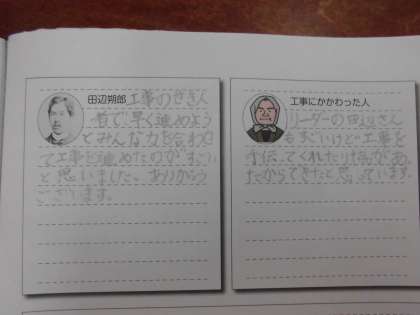 田辺朔郎 工事のせき人
者で早く進めよう
とみんな力を合わせ
て工事を進めたのがすごい
と思いました。ありがとう
ございます。
工事にかかわった人
リーダーの田辺さん
もすごいけど工事を
手伝ってくれたりがあ
たからできたと思っています。